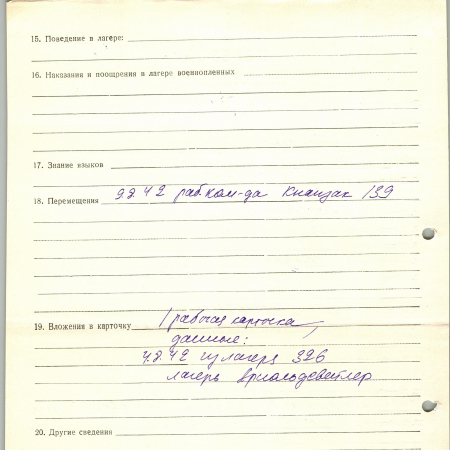 15. Поведение в лагере:
16. Наказания и поощрения в лагере военнопленных
17. Знание языков
18. Перемещения 9.2.42 раб.ком-да Кнаизак 139
19. Вложения в карточку 1 рабочая карточка,
данные:
4.2.42 из лагеря 326
лагерь Арнольдсвейлер
20. Другие сведения